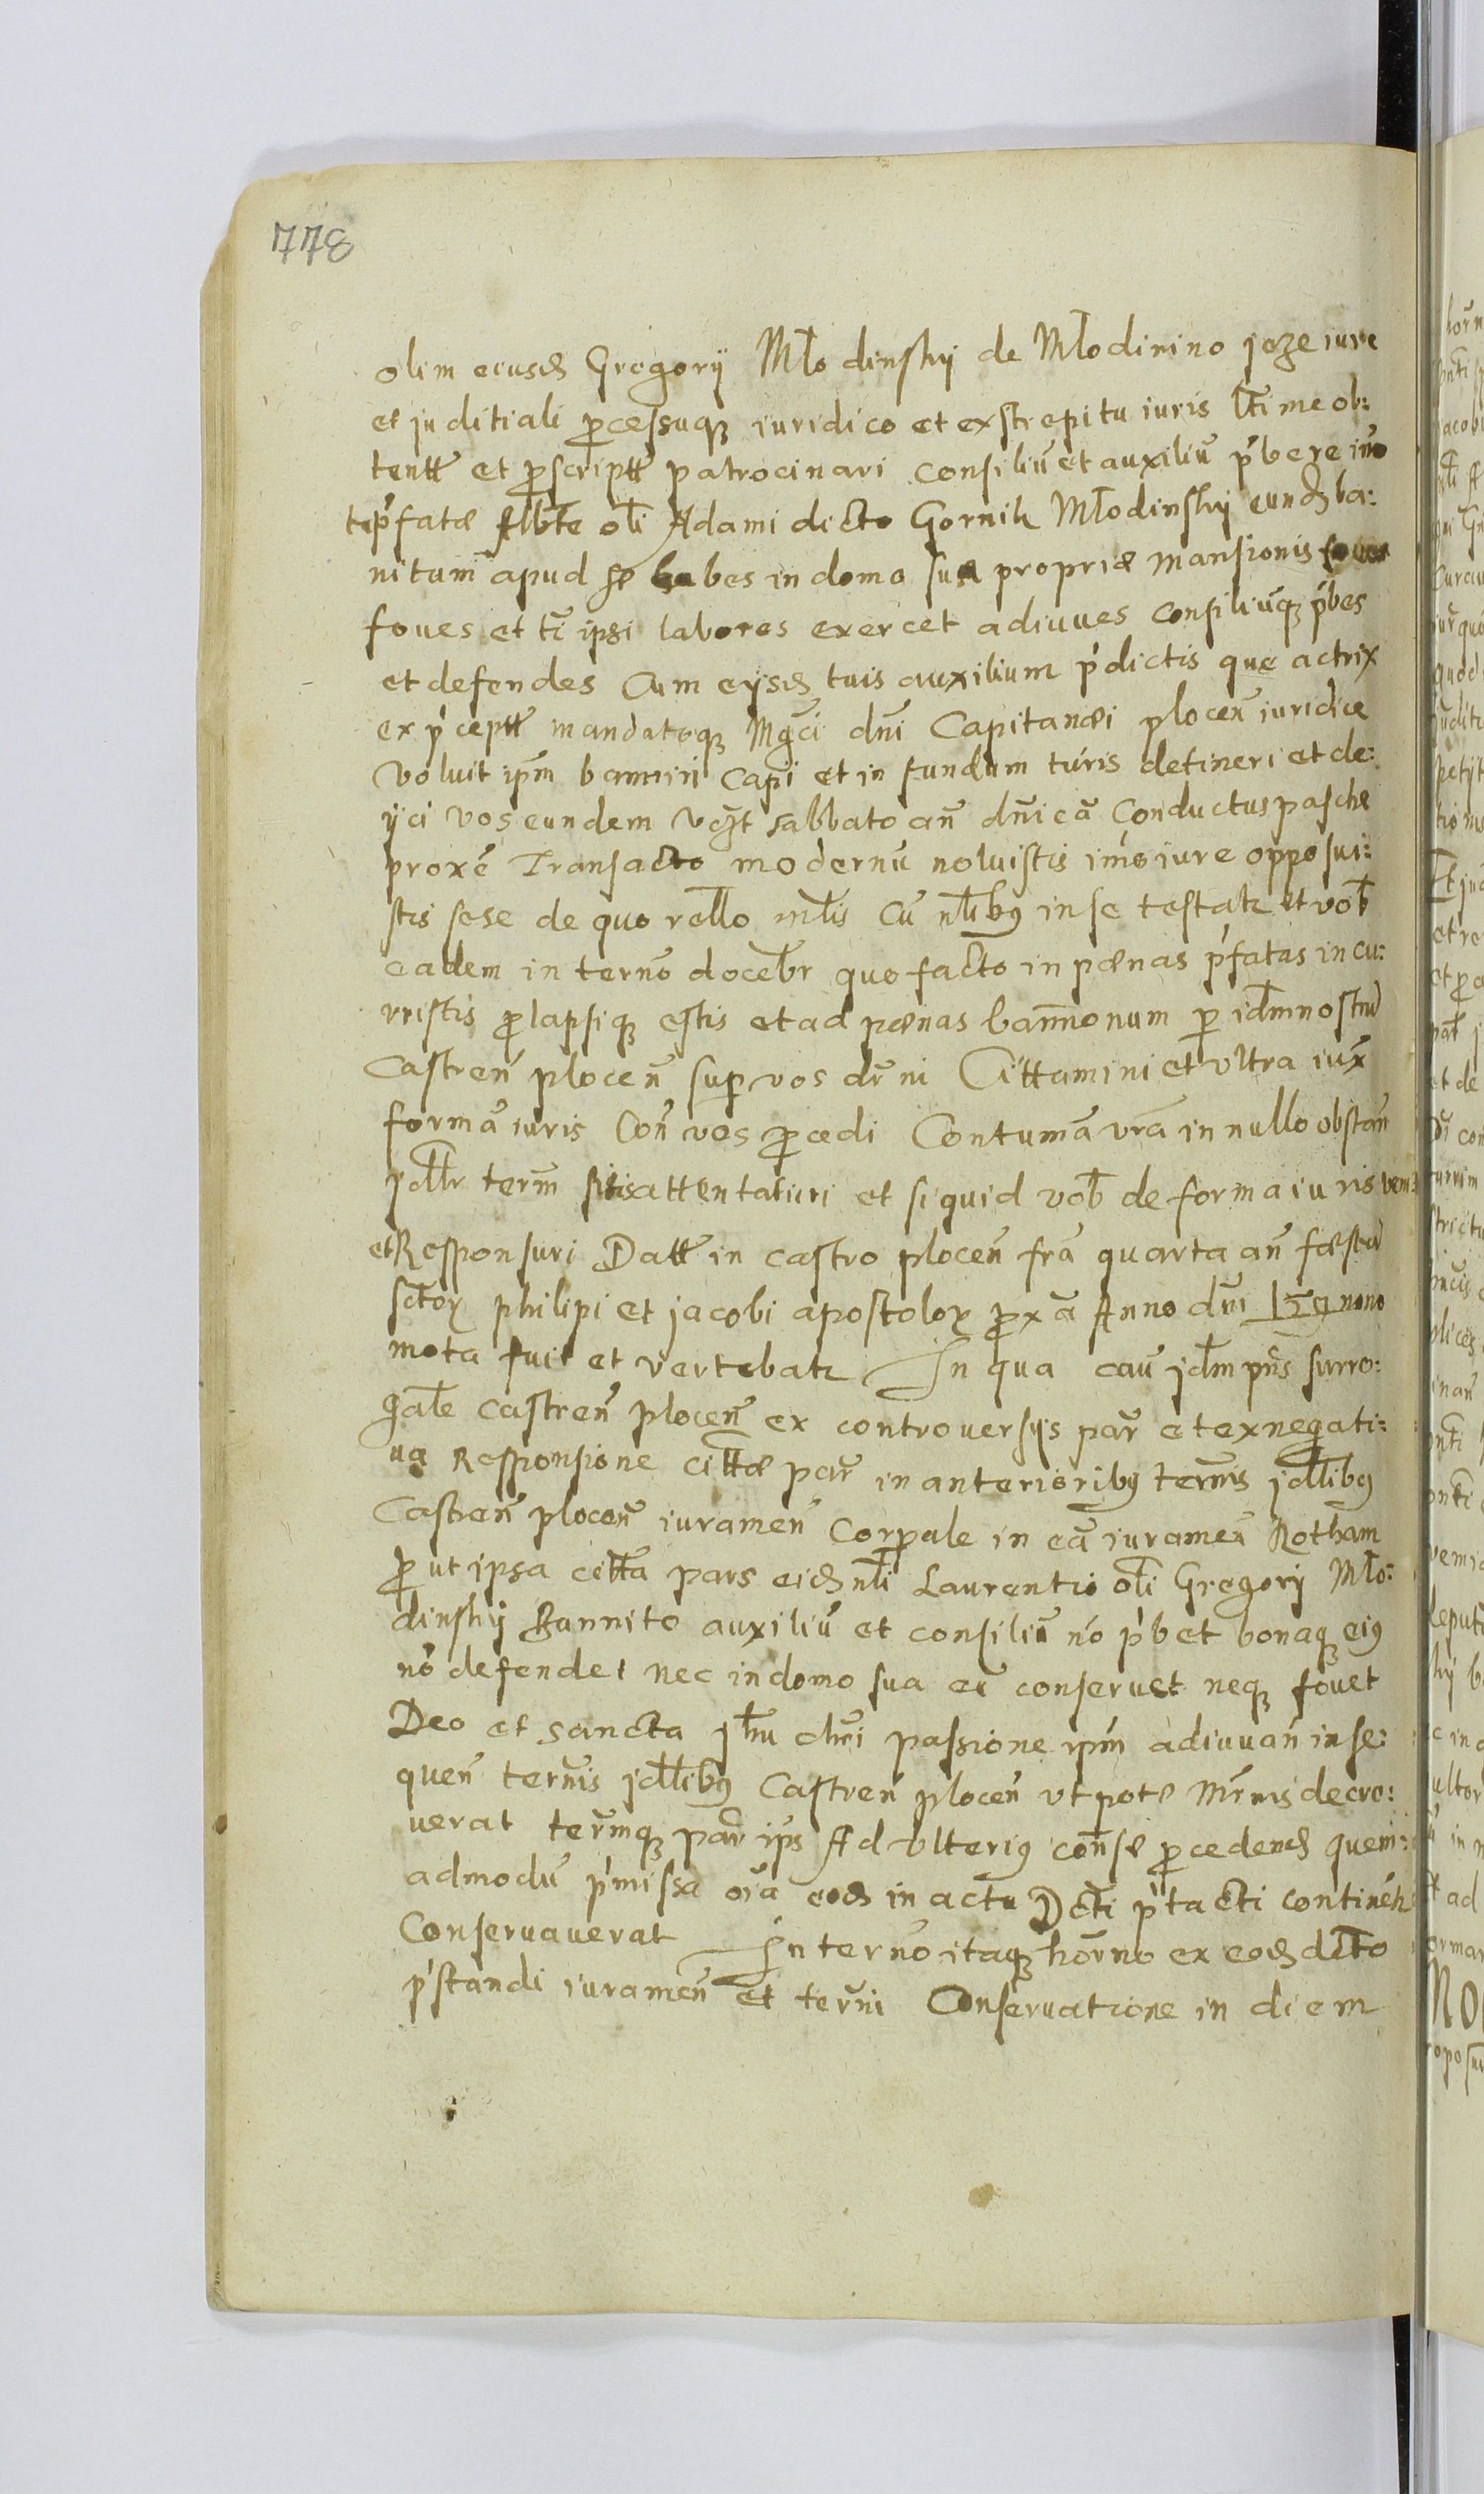 778
olim eiusd Gregorÿ Młodinskÿ de Młodinino jeze iure
et juditiali pcessuq iuridico et exstrepitu iuris ltime ob:
tentt et pscriptt patrocinari consiliū et auxiliū p'bere imo
te p'fatæ Albte oli Adami dicto Gornik Młodinskÿ eund ba:
nitum apud se habes in domo sua propriæ mansionis
foues et ti ipsi labores exercet adiuues consiliuq p'bes
et defendes Cum eÿsd tuis auxilium p'dictis que actrix
ex p'ceptt mandatoq Mgci dni Capitanei plocen iuridice
voluit ipm banniri capi et in fundum turis detineri et de:
ÿci vos eundem sabbato an dnica Conductus pasche
proxe Transacto modernu noluistis imo iure opposui:
stis sese de quo rello mltis cu nlibg in se testatr et vob
eadem in terno docebr quo facto in pænas p'fatas incu:
rristis plapsiq estis et ad pænas bannonum p idmnostru
Castren plocen sup vos dr ni Cittamini et vltra iux
formā iuris Con vos pcedi Contuma vra in nullo obstan
jdllr term sitis attentaturi et si quid vob de forma iuris
et Responsuri Datt in castro plocen fra quarta an fæstu
sctor philipi et jacobi apostolor pxa Anno dni nono
mota fuit et vertebatr In qua cau jdm pns surro:
gate castren plocen ex controuersÿs par et ex negati:
ua Responsione cittæ par in anterioribg ternis jdllibg
Castren plocen iuramen Corpale in ea iuramen Rotham
put ipsa citta pars eid nli Laurentio oli Gregorÿ Mło:
dinskÿ Bannito auxiliū et consiliū nō p'bet bonaq eig
nō defendet nec in domo sua eū conseruet neq fouet
Deo et sancta jhu chri passione ipm adiuuan in se:
quen ternis jdllibg Castren plocen vt pote decre:
uerat termq par ips Ad vlterig conse pcedend quem:
admodū p'missa oia eod in actu Dcti p'tacti continetr
Conseruauerat In terno itaq horno ex eod dcto
p'standi iuramen et terni Conseruatione in diem